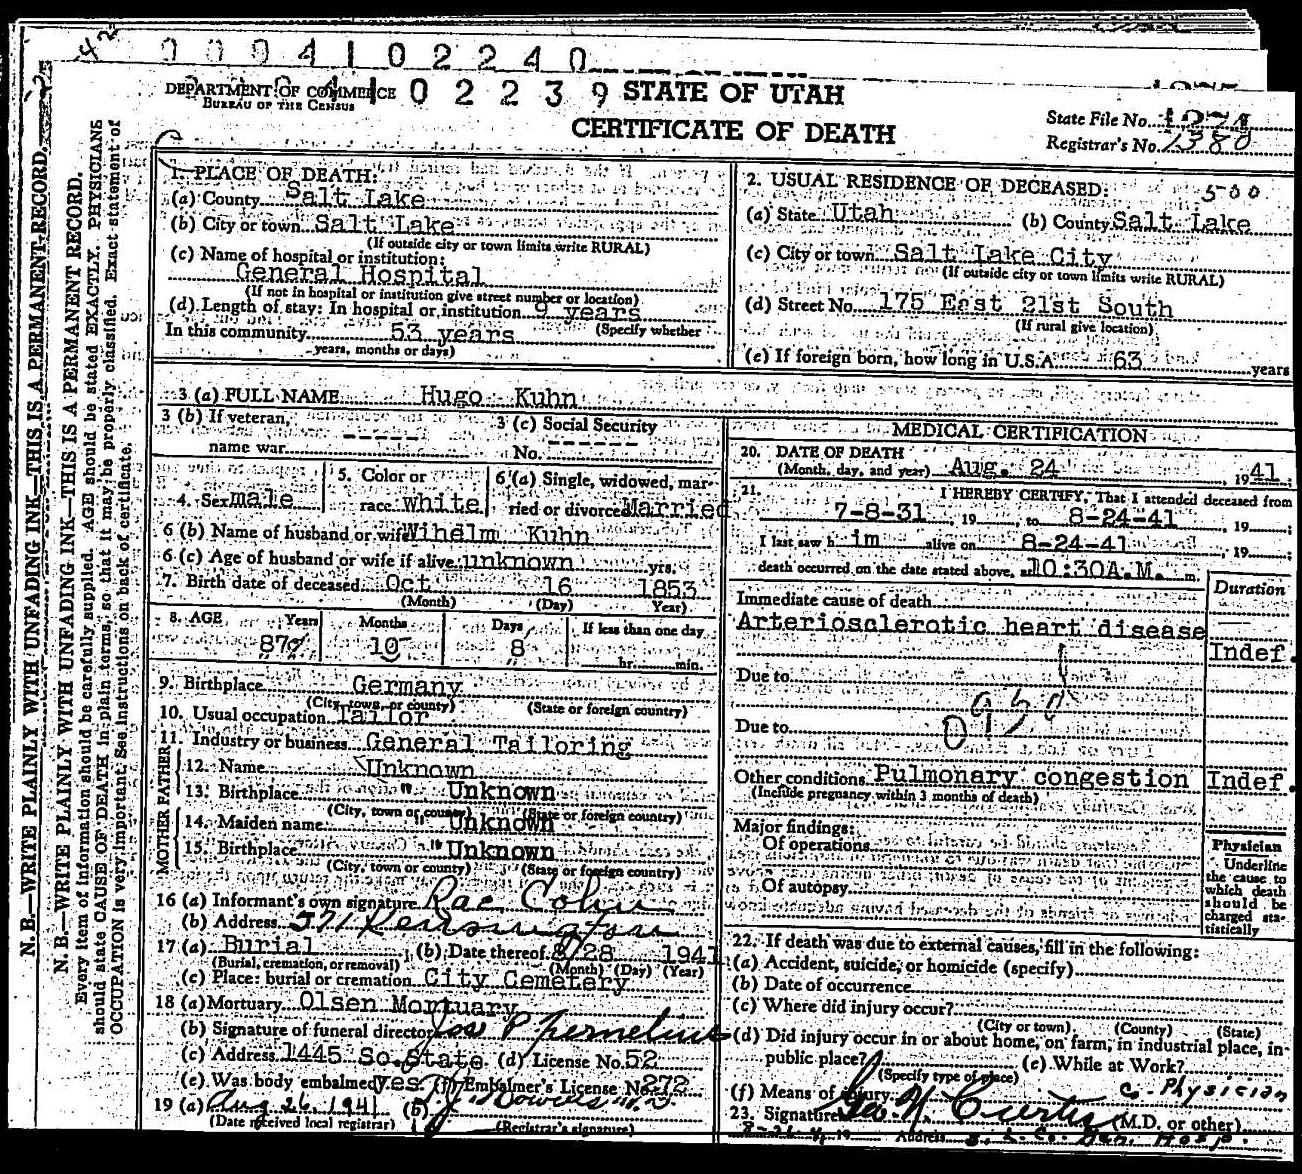 0 0 0 4 1 0 2 2 4 0
DEPARTMENT OF COMMERCE
BUREAU OF THE CENSUS
0 4 1 0 2 2 3 9
STATE OF UTAH
CERTIFICATE OF DEATH
State File No.
Registrar's No. 1380
N. B.—WRITE PLAINLY WITH UNFADING INK—THIS IS A PERMANENT RECORD.
N. B.—WRITE PLAINLY WITH UNFADING INK—THIS IS A PERMANENT RECORD.
Every item of information should be carefully supplied. AGE should be stated EXACTLY. PHYSICIANS
should state CAUSE OF DEATH in plain terms, so that it may be properly classified. Exact statement of
OCCUPATION is very important. See instructions on back of certificate.
1. PLACE OF DEATH:
(a) County Salt Lake
(b) City or town Salt Lake
(If outside city or town limits write RURAL)
(c) Name of hospital or institution:
General Hospital
(If not in hospital or institution give street number or location)
(d) Length of stay: In hospital or institution 9 years
(Specify whether
In this community 53 years
years, months or days)
2. USUAL RESIDENCE OF DECEASED: 500
(a) State Utah (b) County Salt Lake
(c) City or town Salt Lake City
(If outside city or town limits write RURAL)
(d) Street No. 175 East 21st South
(If rural give location)
(e) If foreign born, how long in U.S.A. 63 years
3 (a) FULL NAME Hugo Kuhn
3 (b) If veteran,
name war -----
3 (c) Social Security
No. ------
4. Sex male
5. Color or
race White
6 (a) Single, widowed, mar-
ried or divorced Married
6 (b) Name of husband or wife Wihelm Kuhn
6 (c) Age of husband or wife if alive unknown yrs.
7. Birth date of deceased Oct 16 1853
(Month) (Day) Year)
8. AGE Years Months Days If less than one day
87 10 8 hr. min.
9. Birthplace Germany
(City, town, or county) (State or foreign country)
10. Usual occupation Tailor
11. Industry or business General Tailoring
FATHER
12. Name Unknown
13. Birthplace " Unknown
(City, town or county) (State or foreign country)
MOTHER
14. Maiden name " Unknown
15. Birthplace " Unknown
(City, town or county) (State or foreign country)
16 (a) Informant's own signature Rae Cohn
(b) Address 571 Kensington
17 (a) Burial (b) Date thereof 8/28 1941
(Burial, cremation, or removal) (Month) (Day) (Year)
(c) Place: burial or cremation City Cemetery
18 (a) Mortuary Olsen Mortuary
(b) Signature of funeral director Jos P
(c) Address 1445 So. State (d) License No. 52
(e) Was body embalmed yes (f) Embalmer's License No. 272
19 (a) Aug 26, 1941 (b)
(Date received local registrar) (Registrar's signature)
MEDICAL CERTIFICATION
20. DATE OF DEATH
(Month, day, and year) Aug. 24, 1941;
21. I HEREBY CERTIFY, That I attended deceased from
7-8-31, 19 , to 8-24-41, 19 ;
I last saw h im alive on 8-24-41, 19 ;
death occurred on the date stated above, at 10:30A.M. m.
Duration
Immediate cause of death
Arteriosclerotic heart disease
Indef.
Due to
Due to
Other conditions Pulmonary congestion Indef.
(Include pregnancy within 3 months of death)
Major findings:
Of operations
Of autopsy
Physician
Underline
the cause to
which death
should be
charged sta-
tistically
22. If death was due to external causes, fill in the following:
(a) Accident, suicide, or homicide (specify)
(b) Date of occurrence
(c) Where did injury occur?
(City or town) (County) (State)
(d) Did injury occur in or about home, on farm, in industrial place, in
public place? (e) While at Work?
(Specify type of place)
(f) Means of injury Co. Physician
23. Signature Geo N. Curtis (M.D. or other)
Address S. L. Co. Gen. Hosp.